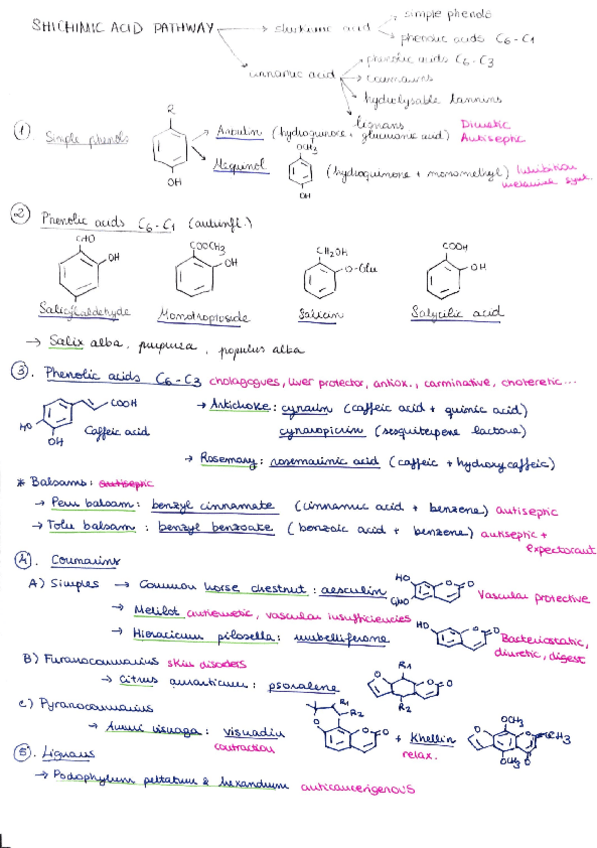 SHICHIMIC ACID PATHWAY
shichimic acid
simple phenols
phenolic acids C6-C1
cinnamic acid
phenolic acids C6-C3
coumarins
hydrolysable tannins
lignans
① Simple phenols
R
OH
Arbutin (hydroquinone + glucuronic acid) Diuretic
Antiseptic
Mequinol
OCH3
OH
(hydroquinone + monomethyl) Inhibition
② Phenolic acids C6-C1 (antiinfl.)
CHO
OH
COOCH3
OH
CH2OH
O-Glu
COOH
OH
Salicylaldehyde Monotroposide Salicin Salycilic acid
→ Salix alba, purpurea, populus alba
③. Phenolic acids C6-C3 cholagogues, liver protector, antiox., carminative, choleretic...
COOH
HO
OH
Caffeic acid
→ Artichoke: cynarin (caffeic acid + quinic acid)
cynaropicrin (sesquiterpene lactone)
→ Rosemary: rosemarinic acid (caffeic + hydroxycaffeic)
* Balsams: antiseptic
→ Peru balsam: benzyl cinnamate (cinnamic acid + benzene) antiseptic
→ Tolu balsam: benzyl benzoate (benzoic acid + benzene) antiseptic +
expectorant
④. Coumarins
A) Simples → Common horse chestnut: aesculin
HO
GluO
O
O
Vascular protective
→ Melilot antiemetic, vascular insufficiencies
→ Hieracicum pilosella: umbelliferone
HO
O
O
Bacteriostatic,
diuretic, digest
B) Furanocoumarins skin disorders
→ Citrus aurantium: psoralene
O
R1
R2
O
O
C) Pyranocoumarins
→ Ammi visnaga: visnadin
contraction
O
R1
R2
O
O
+ Khellin
relax.
O
OCH3
OCH3
O
CH3
⑤. Lignans
→ Podophylum peltatum & hexandrum anticancerigenous